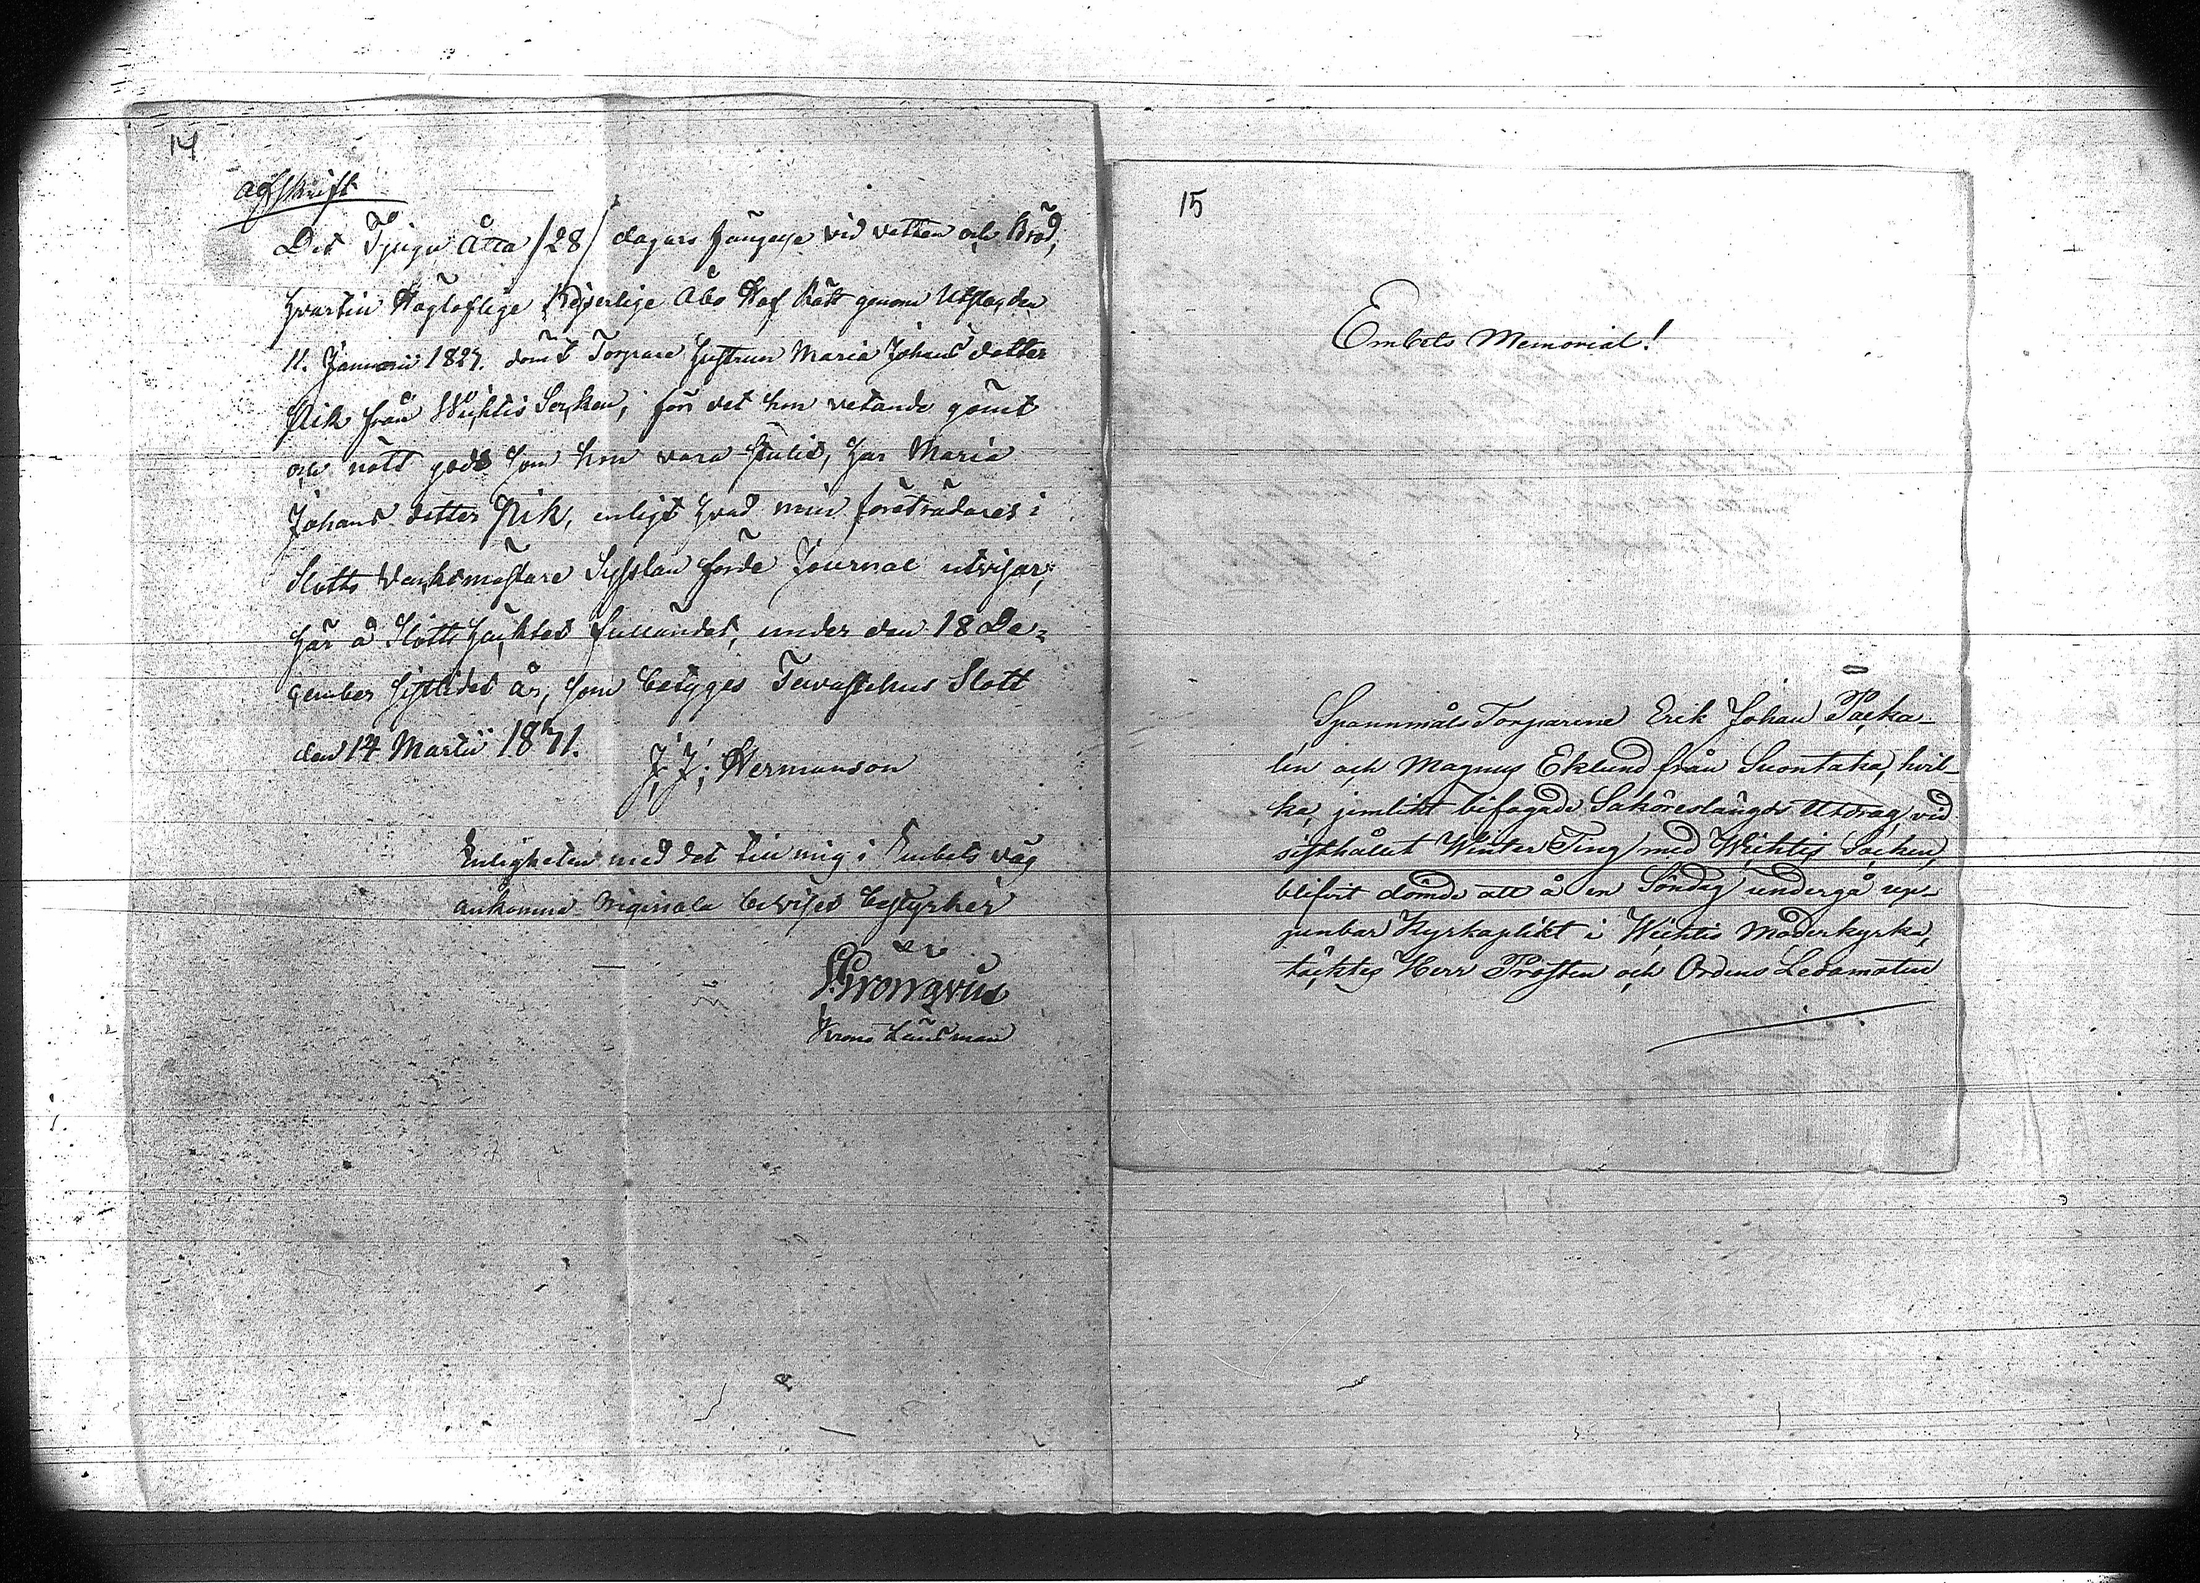 14
Afskrift
Det Tjugu Åtta /28/ dagars fängelse vid vatten och Bröd,
hvartill Högloflige Kejserlige Åbo Hof Rätt genom Utslag den
11. Januarii 1827. dömt Torpare Hustrun Maria Johans dotter
Pik från Wichtis Socken, för det hon vetande gömt
och nött gods som hon vara stulit, har Maria
Johans dotter Pik, enligt hvad min företrädares i
Slotts Vaktmästare Sysslan förde Journal utvisar,
här å Slotts Häktet  under den 18 De=
cember sistledet år, som betyges Tewastehus Slott
den 14 Martii 1831.
J. J. Hermanson
Enligheten med det till mig i Embets väg
ankomne originala beviset bestyrker
Grönqvist
Krono Länsman
15
Embets Memorial!
Spannmåls Torparene Erik Johan Packa-
lén och Magnus Eklund från Suontaka, hvil-
ka, jemlikt bifogade Saköreslängds Utdrag, vid
sisthållit Winter Ting med Wichtis Socken,
blifvit dömde att å en Söndag undergå up-
penbar Kyrkoplikt i Wichtis Moderkyrka,
täcktes Herr Prosten och Ordens Ledamoten